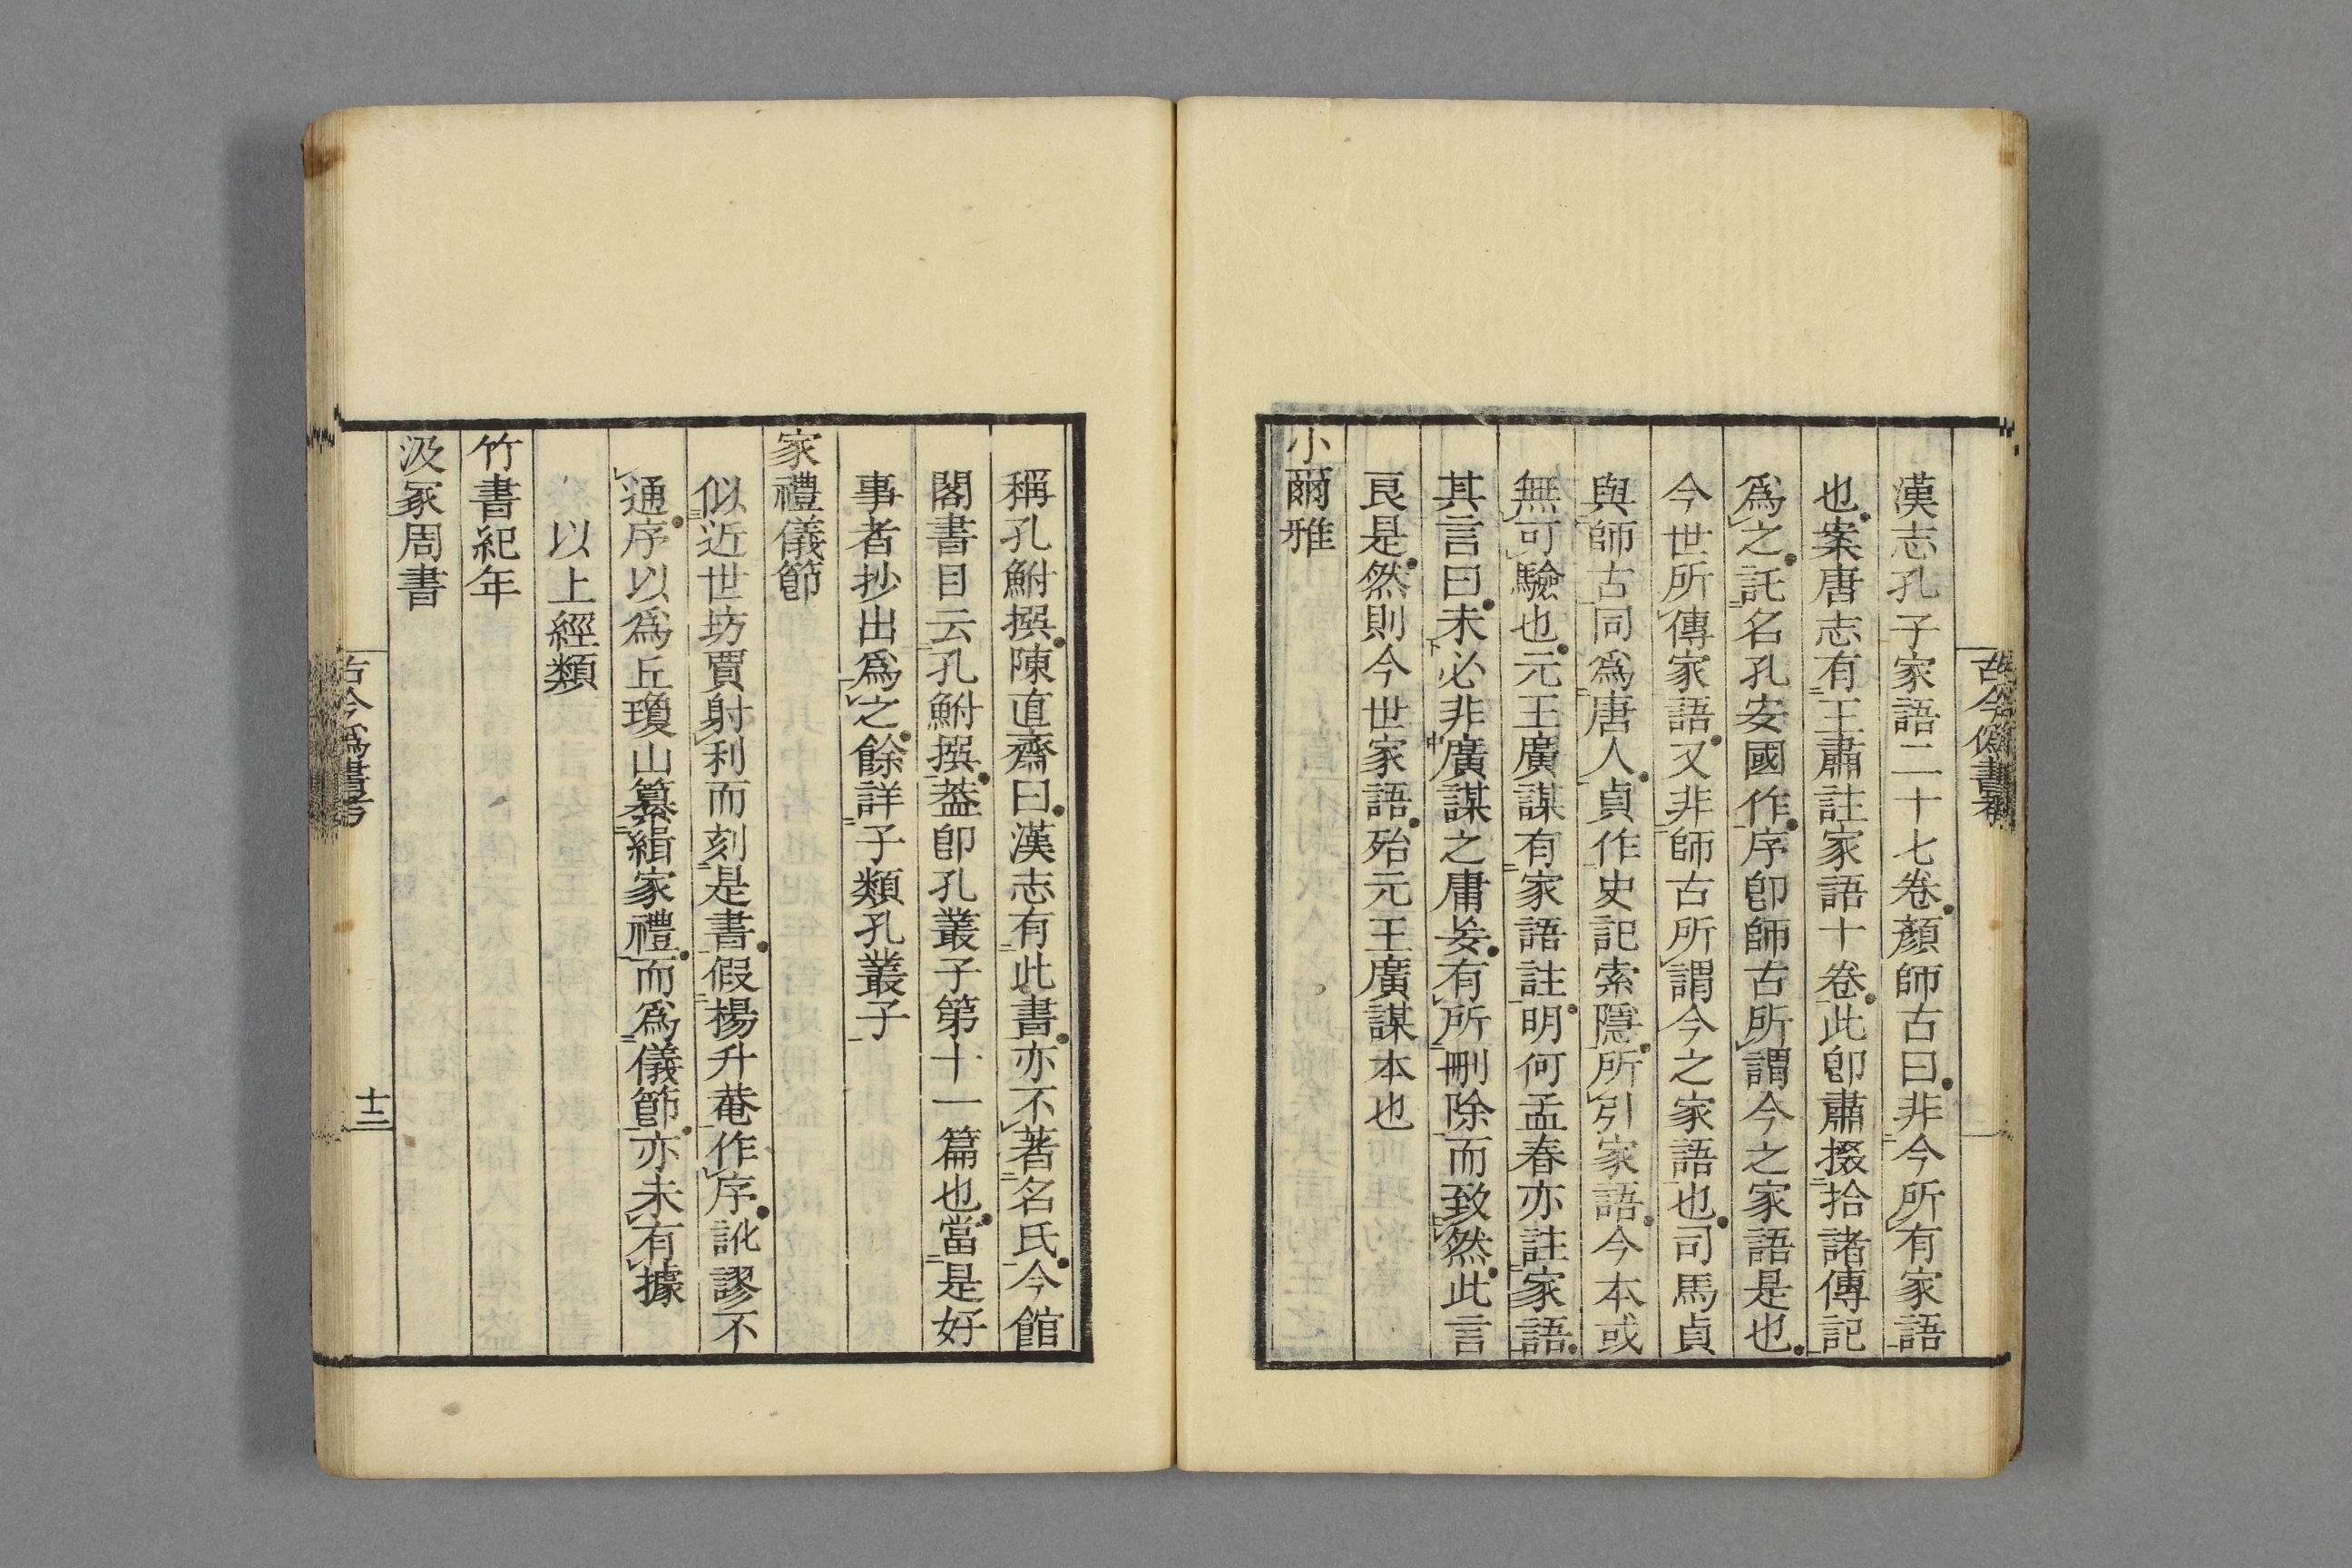 古今僞書考
漢志孔子家語二十七卷顏師古曰非今所有家語
也案唐志有王肅註家語十卷此卽肅掇拾諸傳記
爲之託名孔安國作序卽師古所謂今之家語是也
今世所傳家語又非師古所謂今之家語也司馬貞
與師古同爲唐人貞作史記索隱所引家語今本或
無可驗也元王廣謀有家語註明何孟春亦註家語
其言曰未必非廣謀之庸妄有所刪除而致然此言
良是然則今世家語殆元王廣謀本也
小爾雅
稱孔鮒撰陳直齋曰漢志有此書亦不著名氏今館
閣書目云孔鮒撰葢卽孔叢子第十一篇也當是好
事者抄出爲之餘詳子類孔叢子
家禮儀節
似近世坊賈射利而刻是書假楊升菴作序訛謬不
通序以爲丘瓊山纂緝家禮而爲儀節亦未有據
以上經類
竹書紀年
汲冢周書
古今僞書考
十二